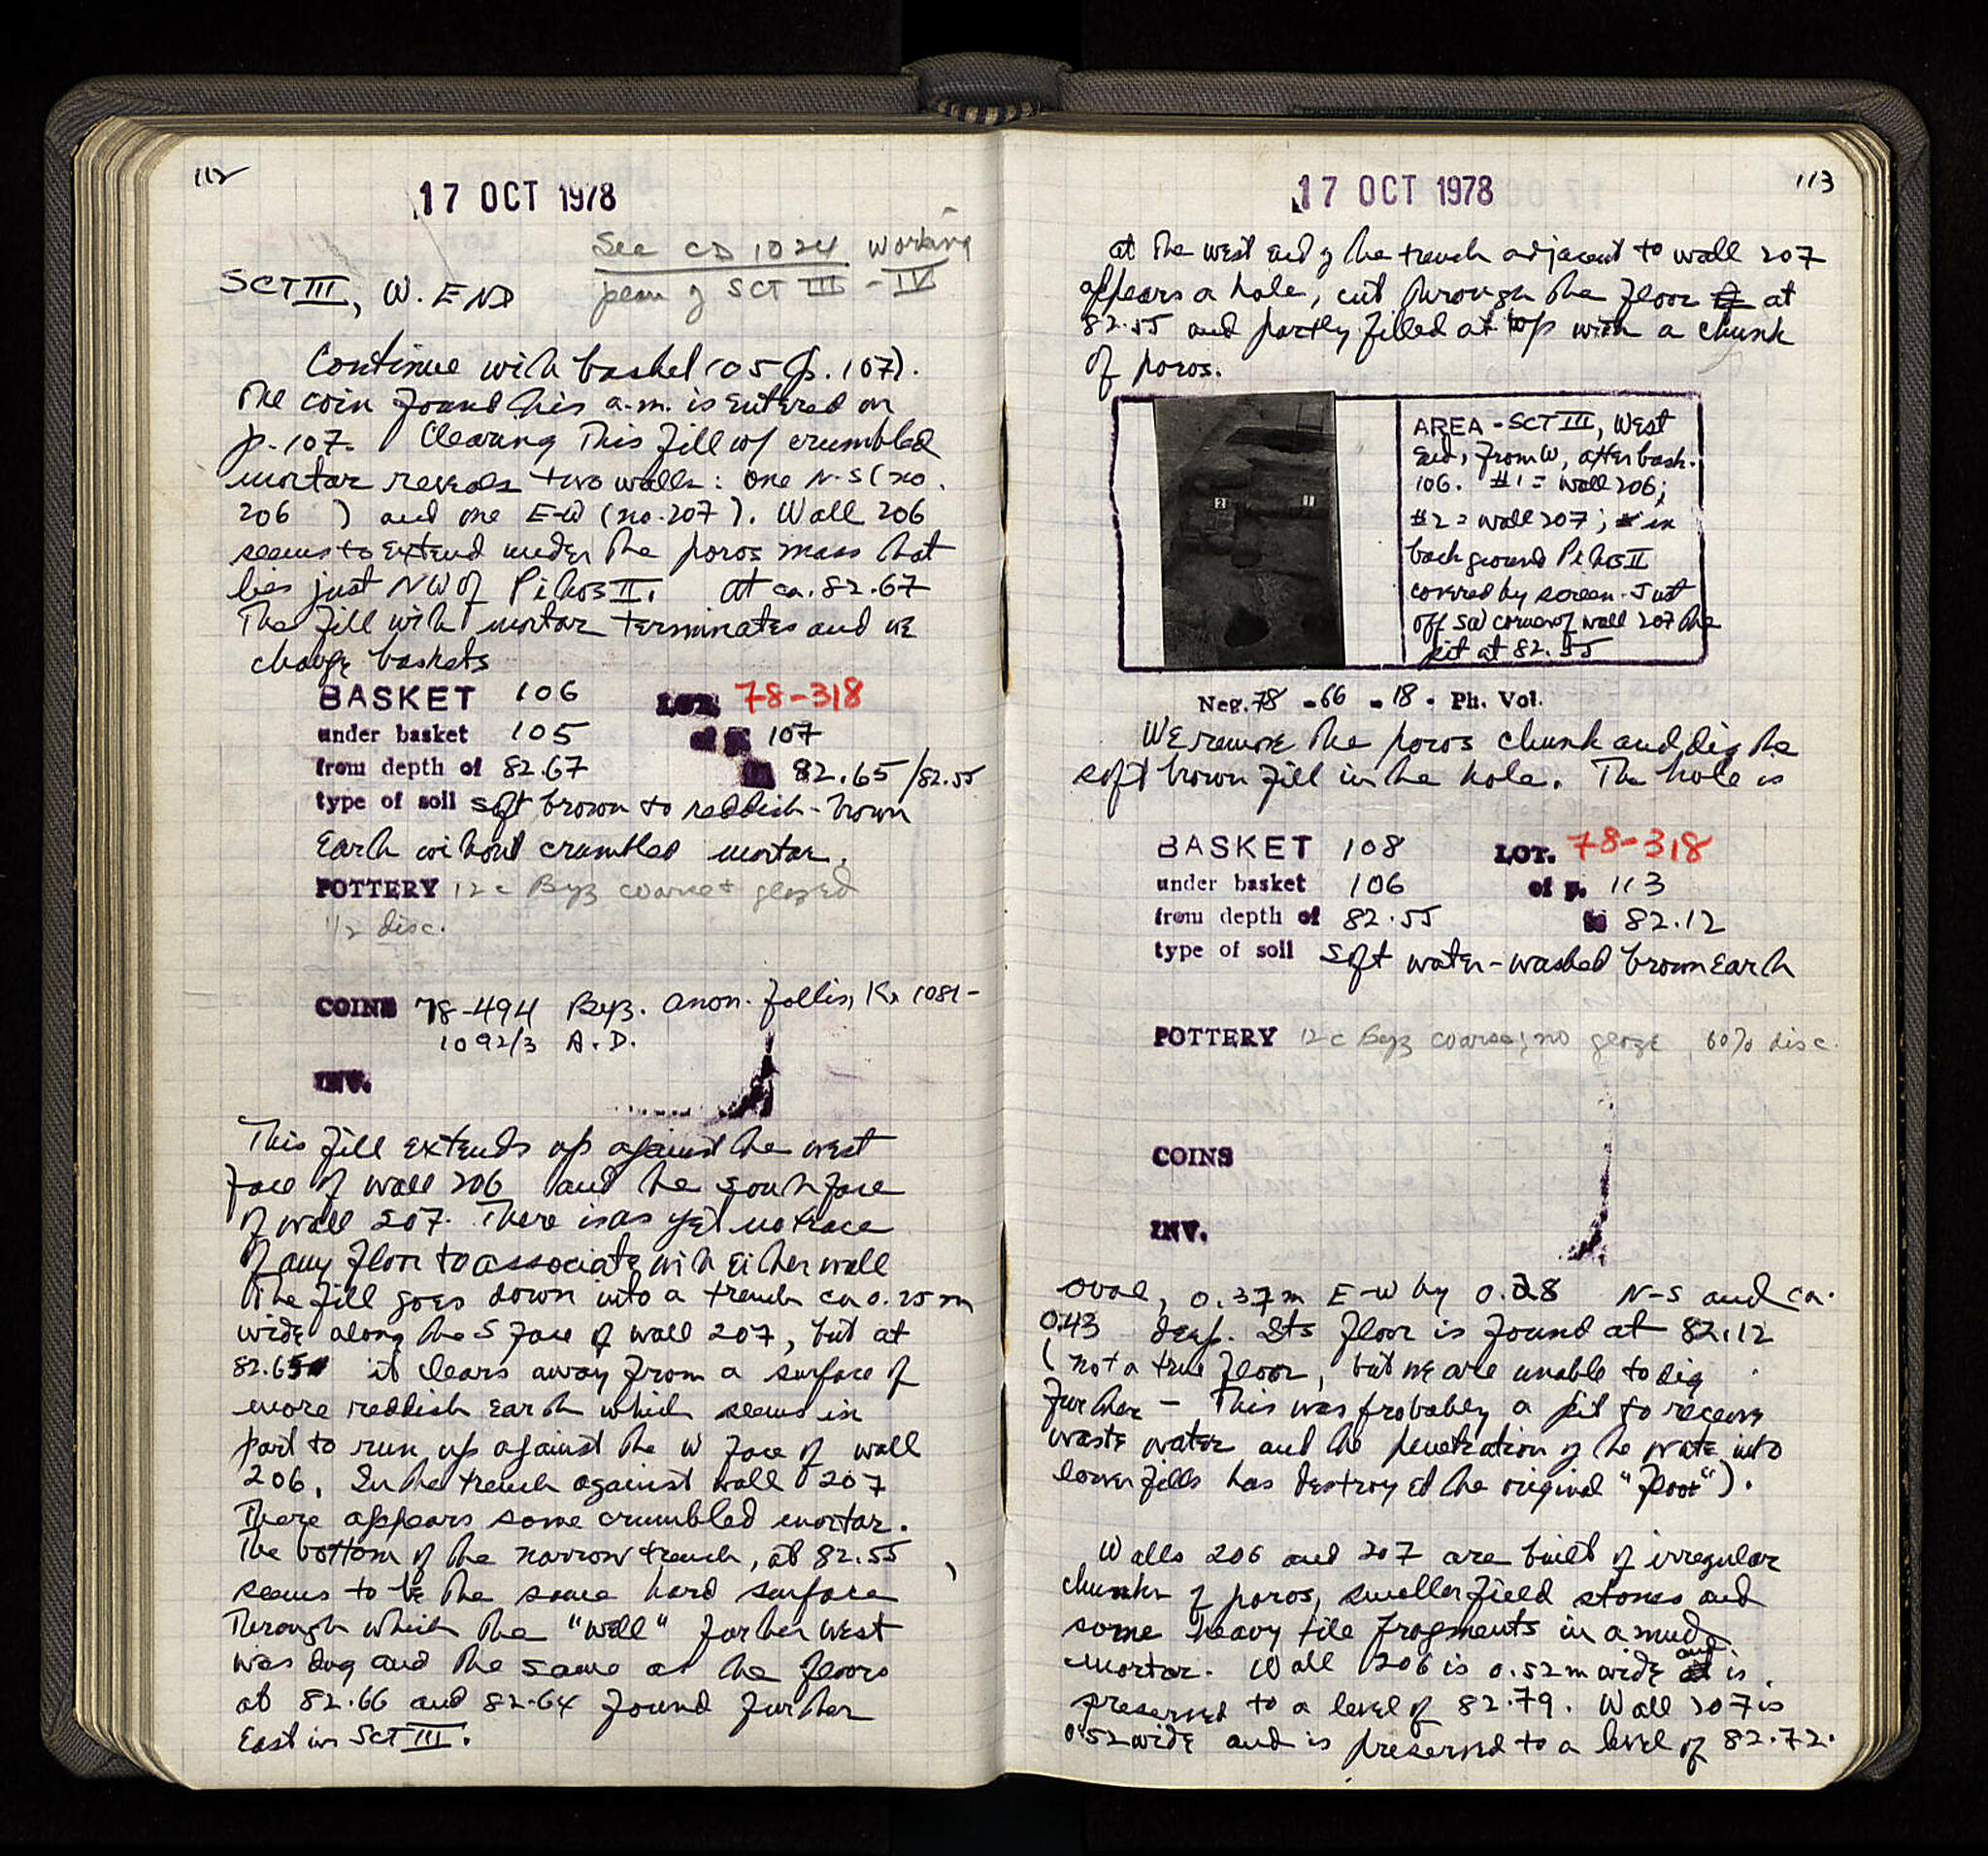 112
17 OCT 1978
See CD 1024 working
plan of SCT III - IV
SCT III, W. END
Continue with basket 105 (p. 107).
The coin found this a.m. is entered on
p. 107. Clearing This fill w/ crumbled
mortar reveals two walls: one N-S (no.
206 ) and one E-W (no. 207). Wall 206
seems to extend under the poros mass that
lies just NW of Pithos II. At ca. 82.67
The fill with mortar terminates and we
change baskets
BASKET 106 LOT. 78-318
under basket 105 of p. 107
from depth of 82.67 to 82.65/82.55
type of soil soft brown to reddish-brown
Earth without crumbled mortar.
POTTERY 12 c Byz coarse + glazed
1/2 disc.
COINS 78-494 Byz. anon. follis, K, 1081-
1092/3 A.D.
INV.
This fill extends up against the west
face of wall 206 and the south face
of wall 207. There is as yet no trace
of any floor to associate with either wall
The fill goes down into a trench ca 0.25 m
wide along the S face of wall 207, but at
82.65 it clears away from a surface of
more reddish earth which seems in
part to run up against the W face of wall
206. In the trench against wall 207
There appears some crumbled mortar.
The bottom of the narrow trench, at 82.55,
seems to be the same hard surface
Through which the "well" farther west
was dug and the same as the floors
at 82.66 and 82.64 found further
East in SCT III.
113
17 OCT 1978
at the west end of the trench adjacent to wall 207
appears a hole, cut through the floor at
82.55 and partly filled at top with a chunk
of poros.
2 1
AREA - SCT III, West
End, from W, after bask.
106. #1 = wall 206;
#2 = wall 207; in
background Pithos II
covered by screen. Just
off SW corner of wall 207 the
pit at 82.55
Neg. 78 - 66 - 18. Ph. Vol.
We remove the poros chunk and dig the
soft brown fill in the hole. The hole is
BASKET 108 LOT. 78-318
under basket 106 of p. 113
from depth of 82.55 to 82.12
type of soil Soft water-washed brown Earth
POTTERY 12 c Byz coarse; no glaze, 60% disc.
COINS
INV.
oval, 0.37m E-W by 0.28 N-S and ca.
0.43 deep. Its floor is found at 82.12
(not a true floor, but we are unable to dig
further - This was probably a pit to receive
waste water and the penetration of the water into
lower fills has destroyed the original "floor").
Walls 206 and 207 are built of irregular
chunks of poros, smaller field stones and
some heavy tile fragments in a mud
mortar. Wall 206 is 0.52m wide and is
preserved to a level of 82.79. Wall 207 is
0.52 wide and is preserved to a level of 82.72.